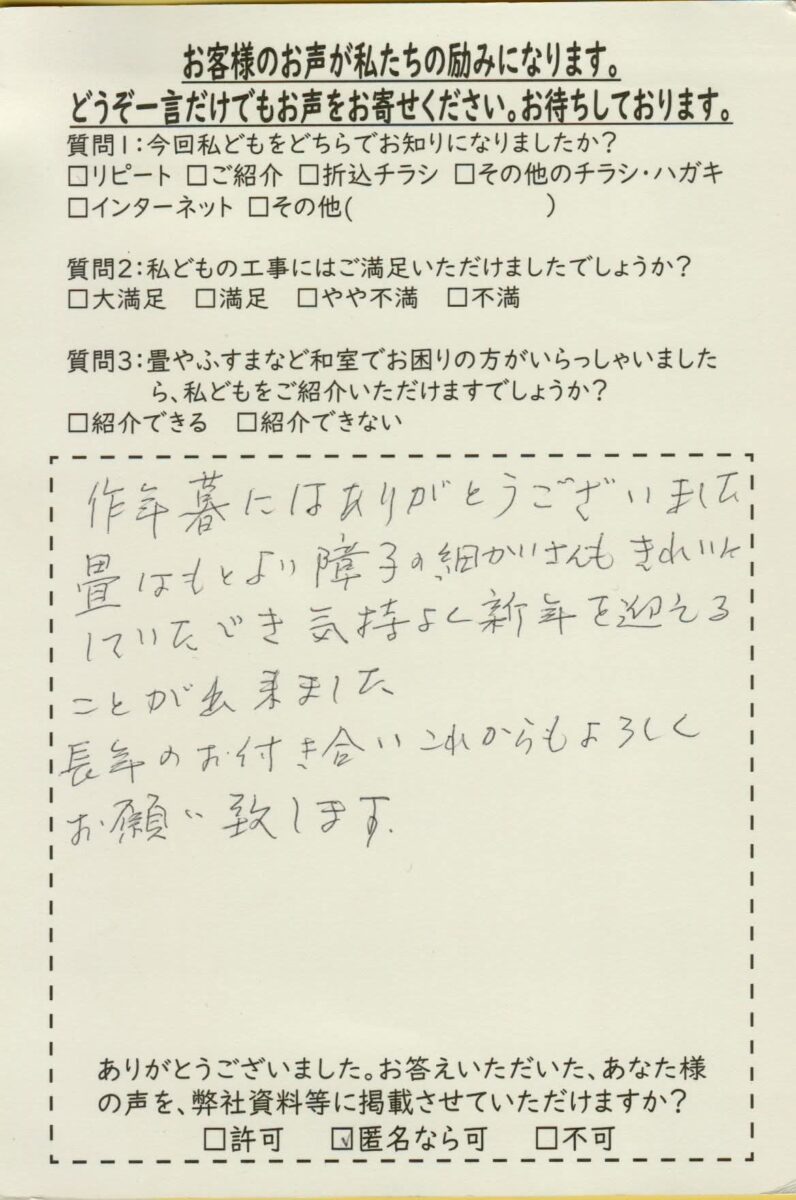 お客様のお声が私たちの励みになります。
どうぞ一言だけでもお声をお寄せください。お待ちしております。
質問1:今回私どもをどちらでお知りになりましたか?
□リピート □ご紹介 □折込チラシ □その他のチラシ・ハガキ
□インターネット □その他( )
質問2:私どもの工事にはご満足いただけましたでしょうか?
□大満足 □満足 □やや不満 □不満
質問3:畳やふすまなど和室でお困りの方がいらっしゃいました
ら、私どもをご紹介いただけますでしょうか?
□紹介できる □紹介できない
作年暮にはありがとうございました
畳はもとより障子の細かいさんもきれいに
していただき気持よく新年を迎える
ことが出来ました
長年のお付き合いこれからもよろしく
お願い致します.
ありがとうございました。お答えいただいた、あなた様
の声を、弊社資料等に掲載させていただけますか?
□許可 ☑匿名なら可 □不可